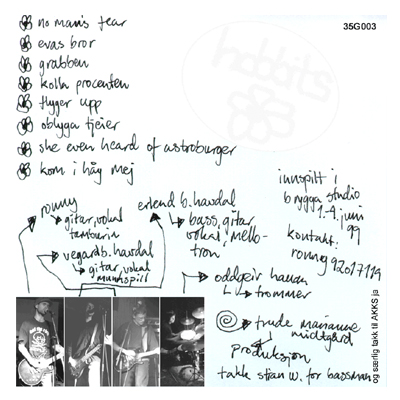 35G003
hobbits
no man's fear
evas bror
grabben
kolla procenten
flyger upp
oblyga tjeier
she even heard of astroburger
kom i håg mej
ronny
gitar, vokal
tamburin
vegard b. havdal
gitar, vokal
munnspill
erlend b. havdal
bass, gitar
vokal, mello-
tron
oddgeir
trommer
innspilt i
brygga studio
1.-4. juni
99
kontakt:
ronny 92017119
trude marianne
midtgård
produksjon
takk stian w. for bassman
og særlig takk til AKKS ja